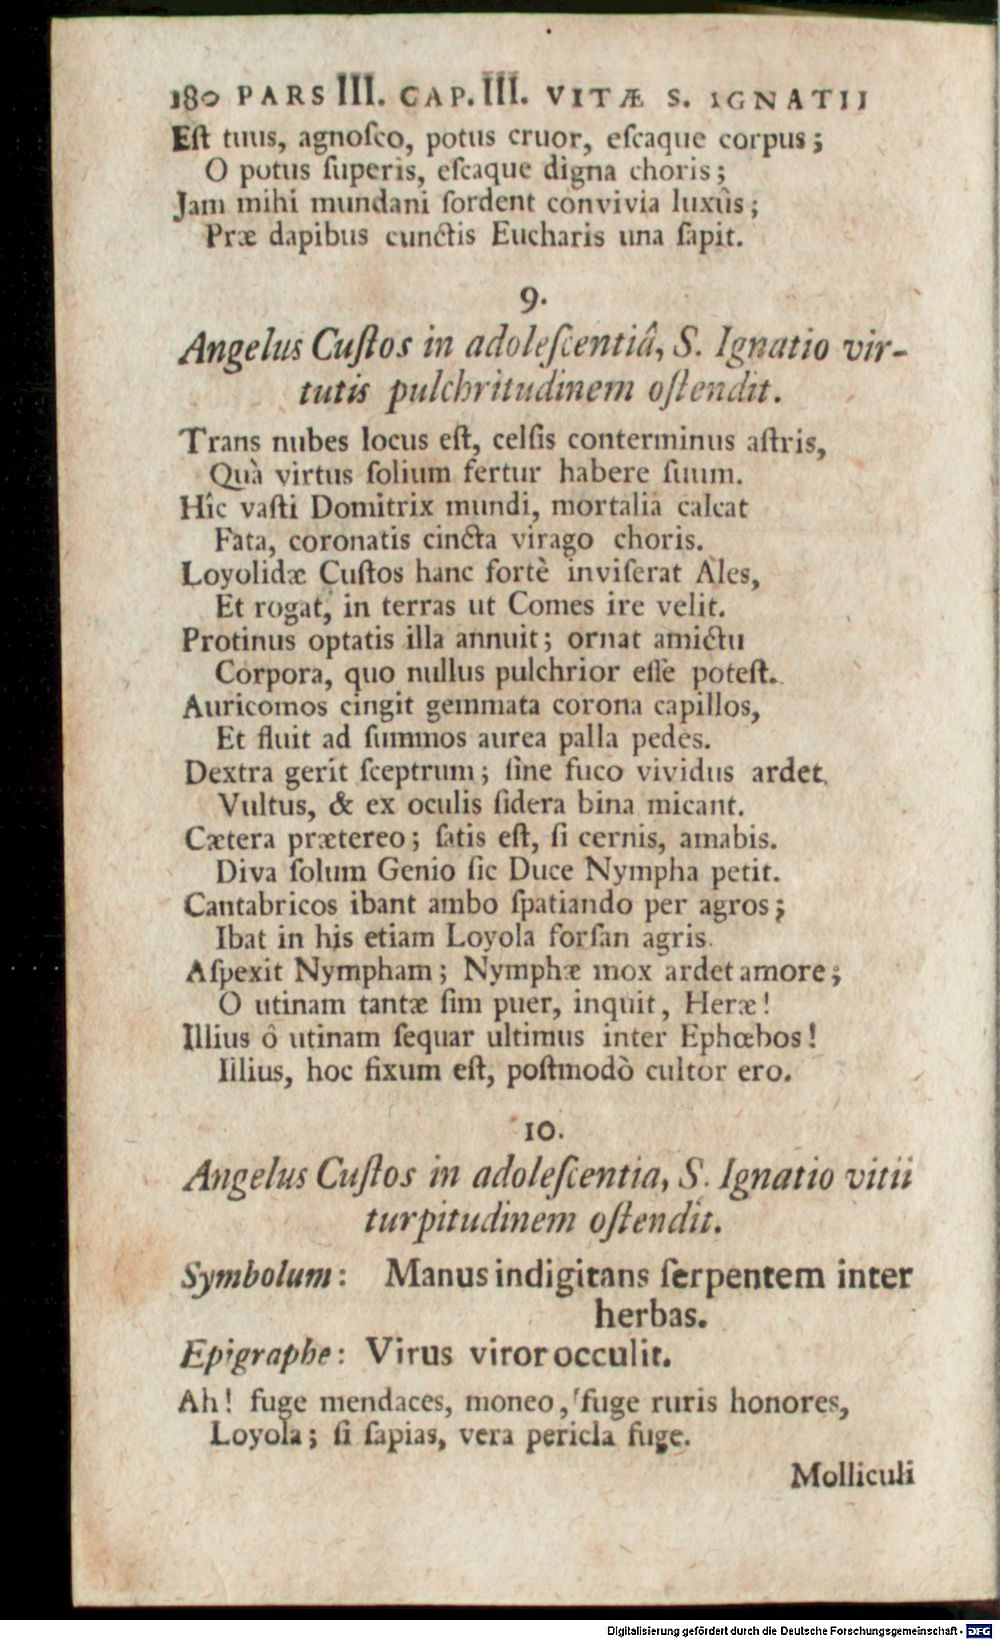 180 PARS III. CAP. III. VITÆ S. IGNATII
Eſt tuus, agnoſco, potus cruor, eſcaque corpus;
O potus ſuperis, eſcaque digna choris;
Jam mihi mundani ſordent convivia luxûs;
Præ dapibus cunctis Eucharis una ſapit.
9.
Angelus Cuſtos in adoleſcentiâ, S. Ignatio vir-
tutis pulchritudinem oſtendit.
Trans nubes locus eſt, celſis conterminus aſtris,
Quà virtus ſolium fertur habere ſuum.
Hîc vaſti Domitrix mundi, mortalia calcat
Fata, coronatis cincta virago choris.
Loyolidæ Cuſtos hanc fortè inviſerat Ales,
Et rogat, in terras ut Comes ire velit.
Protinus optatis illa annuit; ornat amictu
Corpora, quo nullus pulchrior eſſe poteſt.
Auricomos cingit gemmata corona capillos,
Et fluit ad ſummos aurea palla pedes.
Dextra gerit ſceptrum; ſine fuco vividus ardet
Vultus, & ex oculis ſidera bina micant.
Cætera prætereo; ſatis eſt, ſi cernis, amabis.
Diva ſolum Genio ſic Duce Nympha petit.
Cantabricos ibant ambo ſpatiando per agros;
Ibat in his etiam Loyola forſan agris.
Aſpexit Nympham; Nymphæ mox ardet amore;
O utinam tantæ ſim puer, inquit, Heræ!
Illius ô utinam ſequar ultimus inter Ephœbos!
Illius, hoc fixum eſt, poſtmodò cultor ero.
10.
Angelus Cuſtos in adoleſcentia, S. Ignatio vitii
turpitudinem oſtendit.
Symbolum: Manus indigitans ſerpentem inter
herbas.
Epigraphe: Virus viror occulit.
Ah! fuge mendaces, moneo, fuge ruris honores,
Loyola; ſi ſapias, vera pericla fuge.
Molliculi
Digitalisierung gefördert durch die Deutsche Forschungsgemeinschaft - DFG